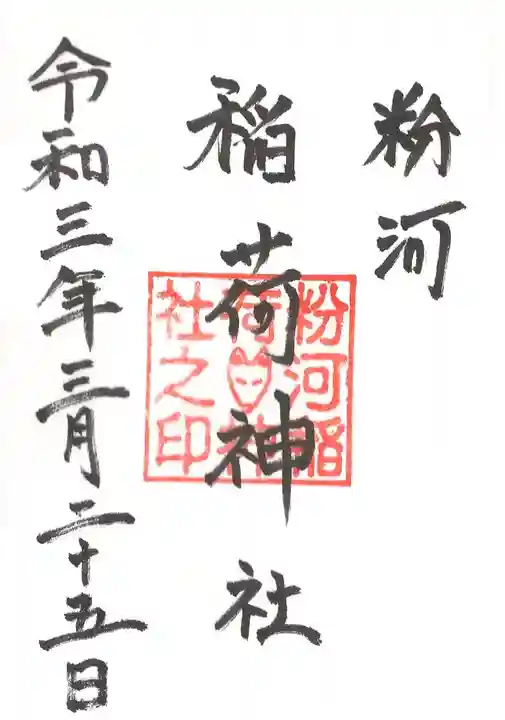 粉河
稲荷神社
令和三年三月二十五日
粉河稲
荷神
社之印